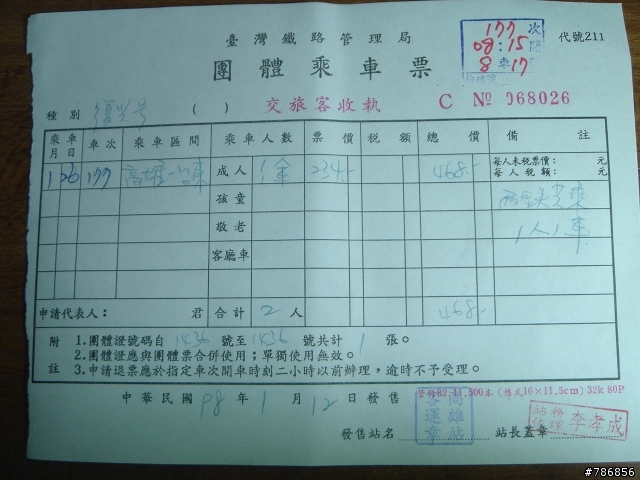 臺灣鐵路管理局
177 次
08:15 開
8 車 17
代號211
團體乘車票
種別 復光号 ( ) 交旅客收執 C № 068026
乘車月日 車次 乘車區間 乘車人數 票價 稅額 總價 備註
1 26 177 高雄—台東 成人 234.- 468.- 每人未稅票價: 元
每人稅額: 元
孩童
敬老 1人1車
客廳車
申請代表人: 君 合計 2 人 468.-
附註 1.團體證號碼自 1436 號至 1436 號共計 1 張。
2.團體證應與團體票合併使用;單獨使用無效。
3.申請退票應於指定車次開車時刻二小時以前辦理,逾時不予受理。
管份82.11.500本(格式16×11.5cm)32k 80P
中華民國 98 年 1 月 12 日發售
發售站名 高雄站運章 站長蓋章 站務佐理 李孝成
#786856